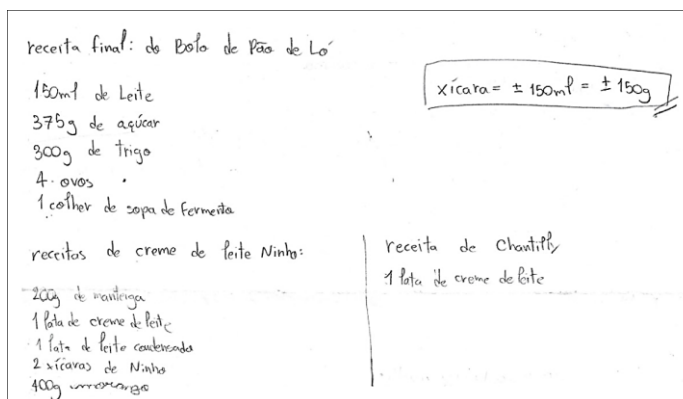 receita final: do Bolo de Pão de Ló
xícara = ± 150ml = ± 150g
150ml de Leite
375g de açúcar
300g de trigo
4 ovos
1 colher de sopa de fermento
receitas de creme de leite Ninho:
200g de manteiga
1 lata de creme de leite
1 lata de leite condensado
2 xícaras de Ninho
400g morango
receita de Chantilly
1 lata de creme de leite